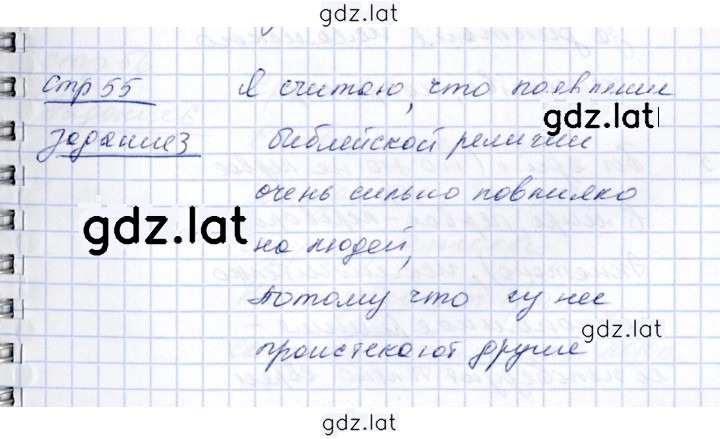 gdz.lat
стр 55 Я считаю, что появление
gdz.lat
задание3 библейской религии
очень сильно повлияло
gdz.lat
на людей,
потому что су нее
gdz.lat
проистекают другие
gdz.lat